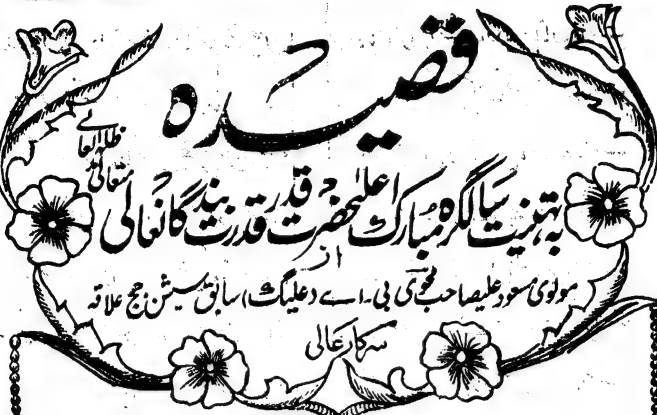 قصیدہ
بہ تہنیت سالگرہ مبارک اعلیٰحضرت قدر قدرت بندگانعالی متعالی ظلہ العالی
از
مولوی مسعود علیصاحب محوی بی۔اے (علیگ) سابق سیشن جج علاقہ
سرکارعالی